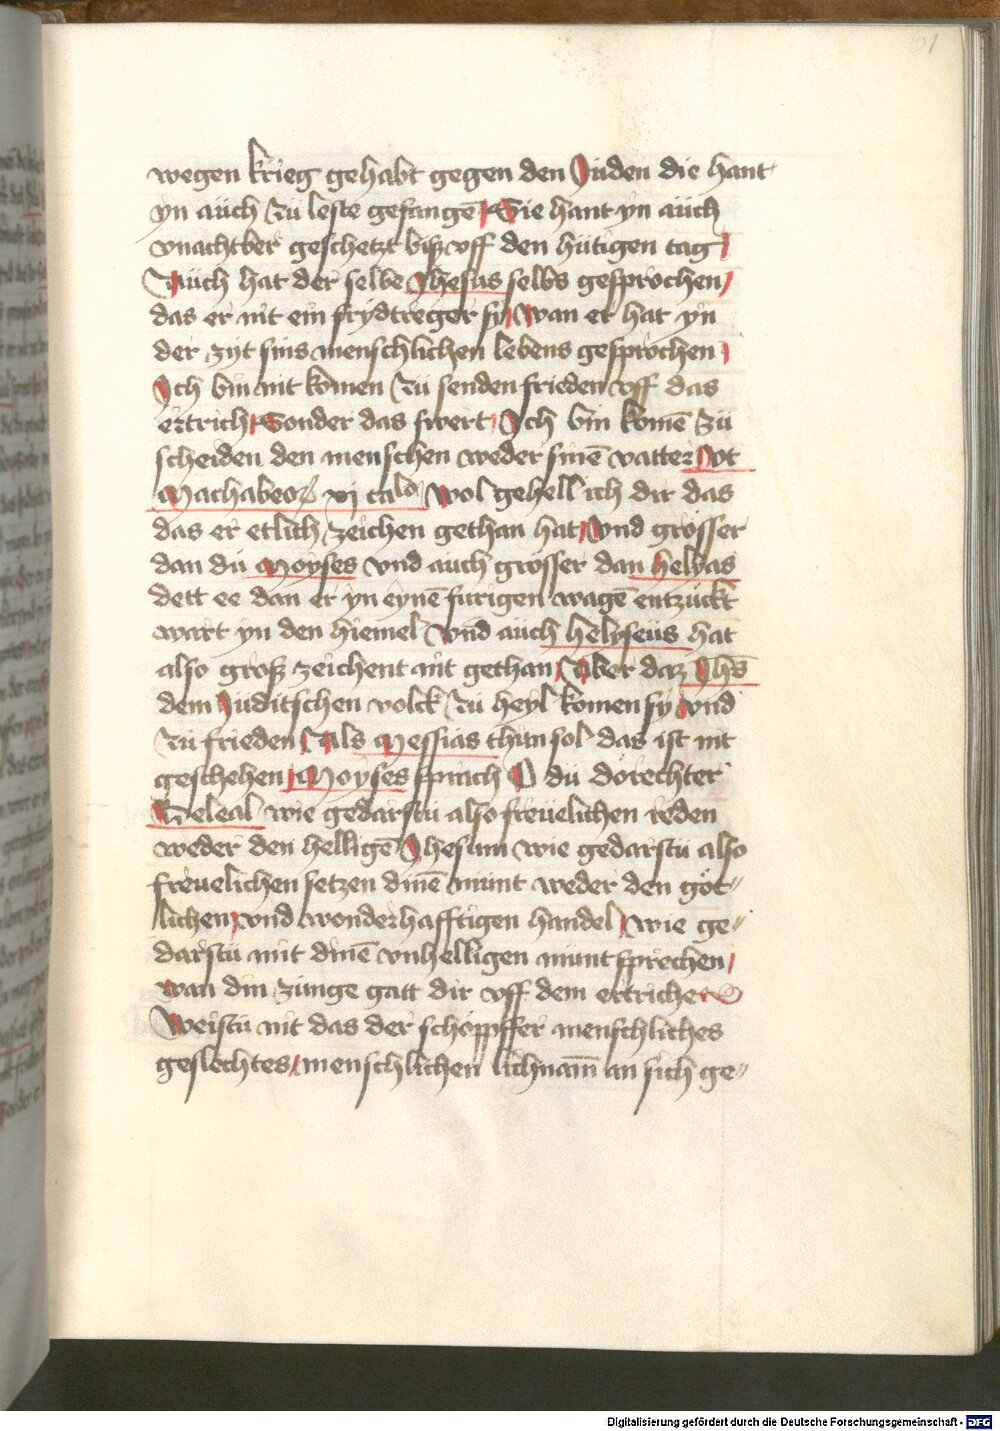 61
wegen krieg gehabt gegen den Juden die hant
yn auch zu leste gefangē / Sie hant yn auch
vnachtber geschetzt bisz vff den hütigen tag /
Auch hat der selbe Jhesus selbs gesprochen /
das er nit ein frydtreger sy / wan er hat yn
der zyt sins menschlichen lebens gesprochen /
Ich bin nit komen zu senden frieden vff das
ertrich / Sonder das swert / Ich bin komē zu
scheiden den menschen weder sinē vatter / vt
Machabeoꝝ xj calo wol gehell ich dir das
das er etlich zeichen gethan hat / vnd grosser
dan du Moyses vnd auch grosser dan helyas
dett ee dan er yn eynē furigen wagē entzuckt
wart yn den hiemel / vnd auch helyseus hat
also grosz zeichent nit gethan / Aber daz Jhs̄
dem Juditschen volck zu heyl komen sy / vnd
zu frieden / Als Messias thun sol das ist nit
geschehen / Moyses sprach O du dorechter
Beleal wie gedarstu also freuelichen reden
weder den helligē Jhesum wie gedarstu also
freuelichen setzen dinē munt weder den göt"
lichen / vnd wonderhafftigen handel / wie ge"
darstu mit dinē vnhelligen munt sprechen /
wan din zunge gatt dir vff dem ertriche
Weistu nit das der schöppffer menschliches
geslechtes / menschlichen lichnam̄ an sich ge"
Digitalisierung gefördert durch die Deutsche Forschungsgemeinschaft - DFG